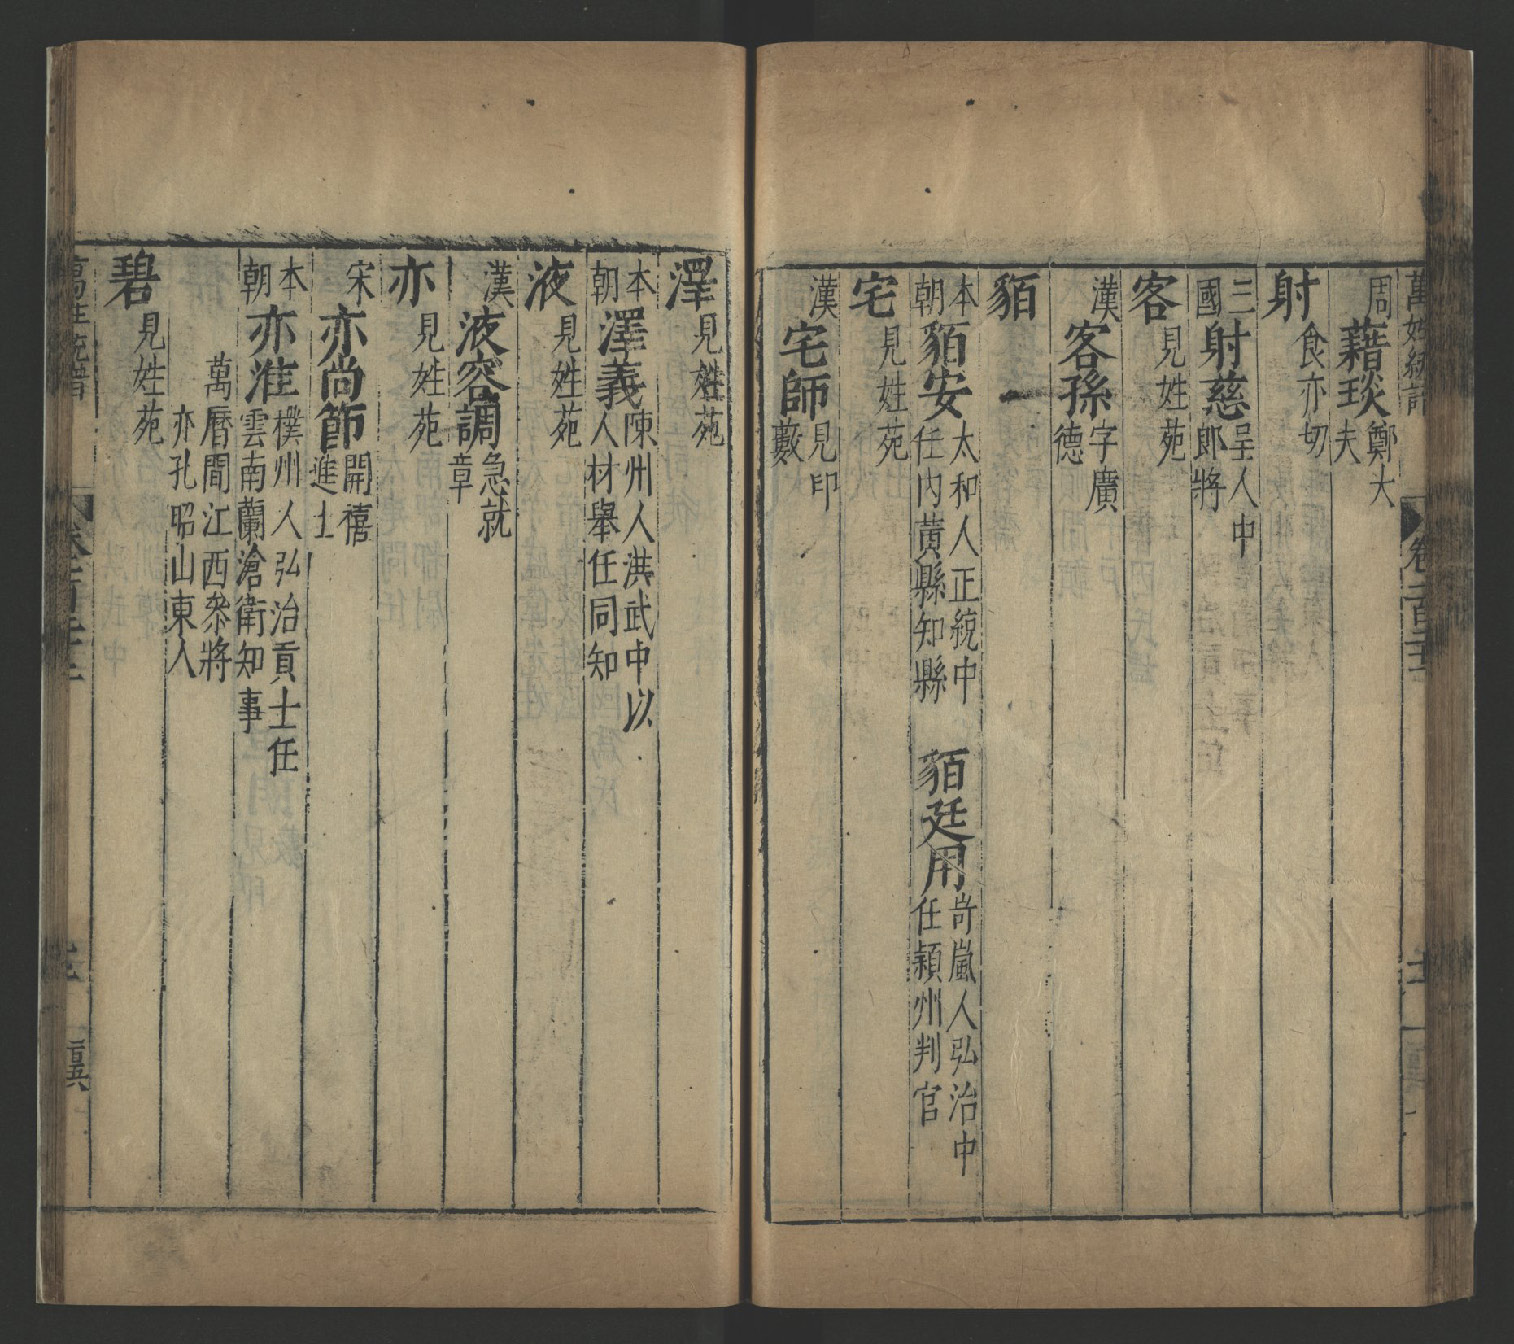 萬姓統譜 卷一百二十二
周藉琰鄭大夫
射食亦切
三國射慈呈人中郎將
客見姓苑
漢客孫字廣德
貊一
本朝貊安太和人正統中任內黃縣知縣 貊廷用岢嵐人弘治中任潁州判官
宅見姓苑
漢宅師見印藪
澤見姓苑
本朝澤義陳州人洪武中以人材舉任同知
液見姓苑
漢液容調急就章
亦見姓苑
宋亦尚節開禧進士
本朝亦准樸州人弘治貢士任雲南蘭滄衛知事
萬曆間江西叅將亦孔昭山東人
碧見姓苑